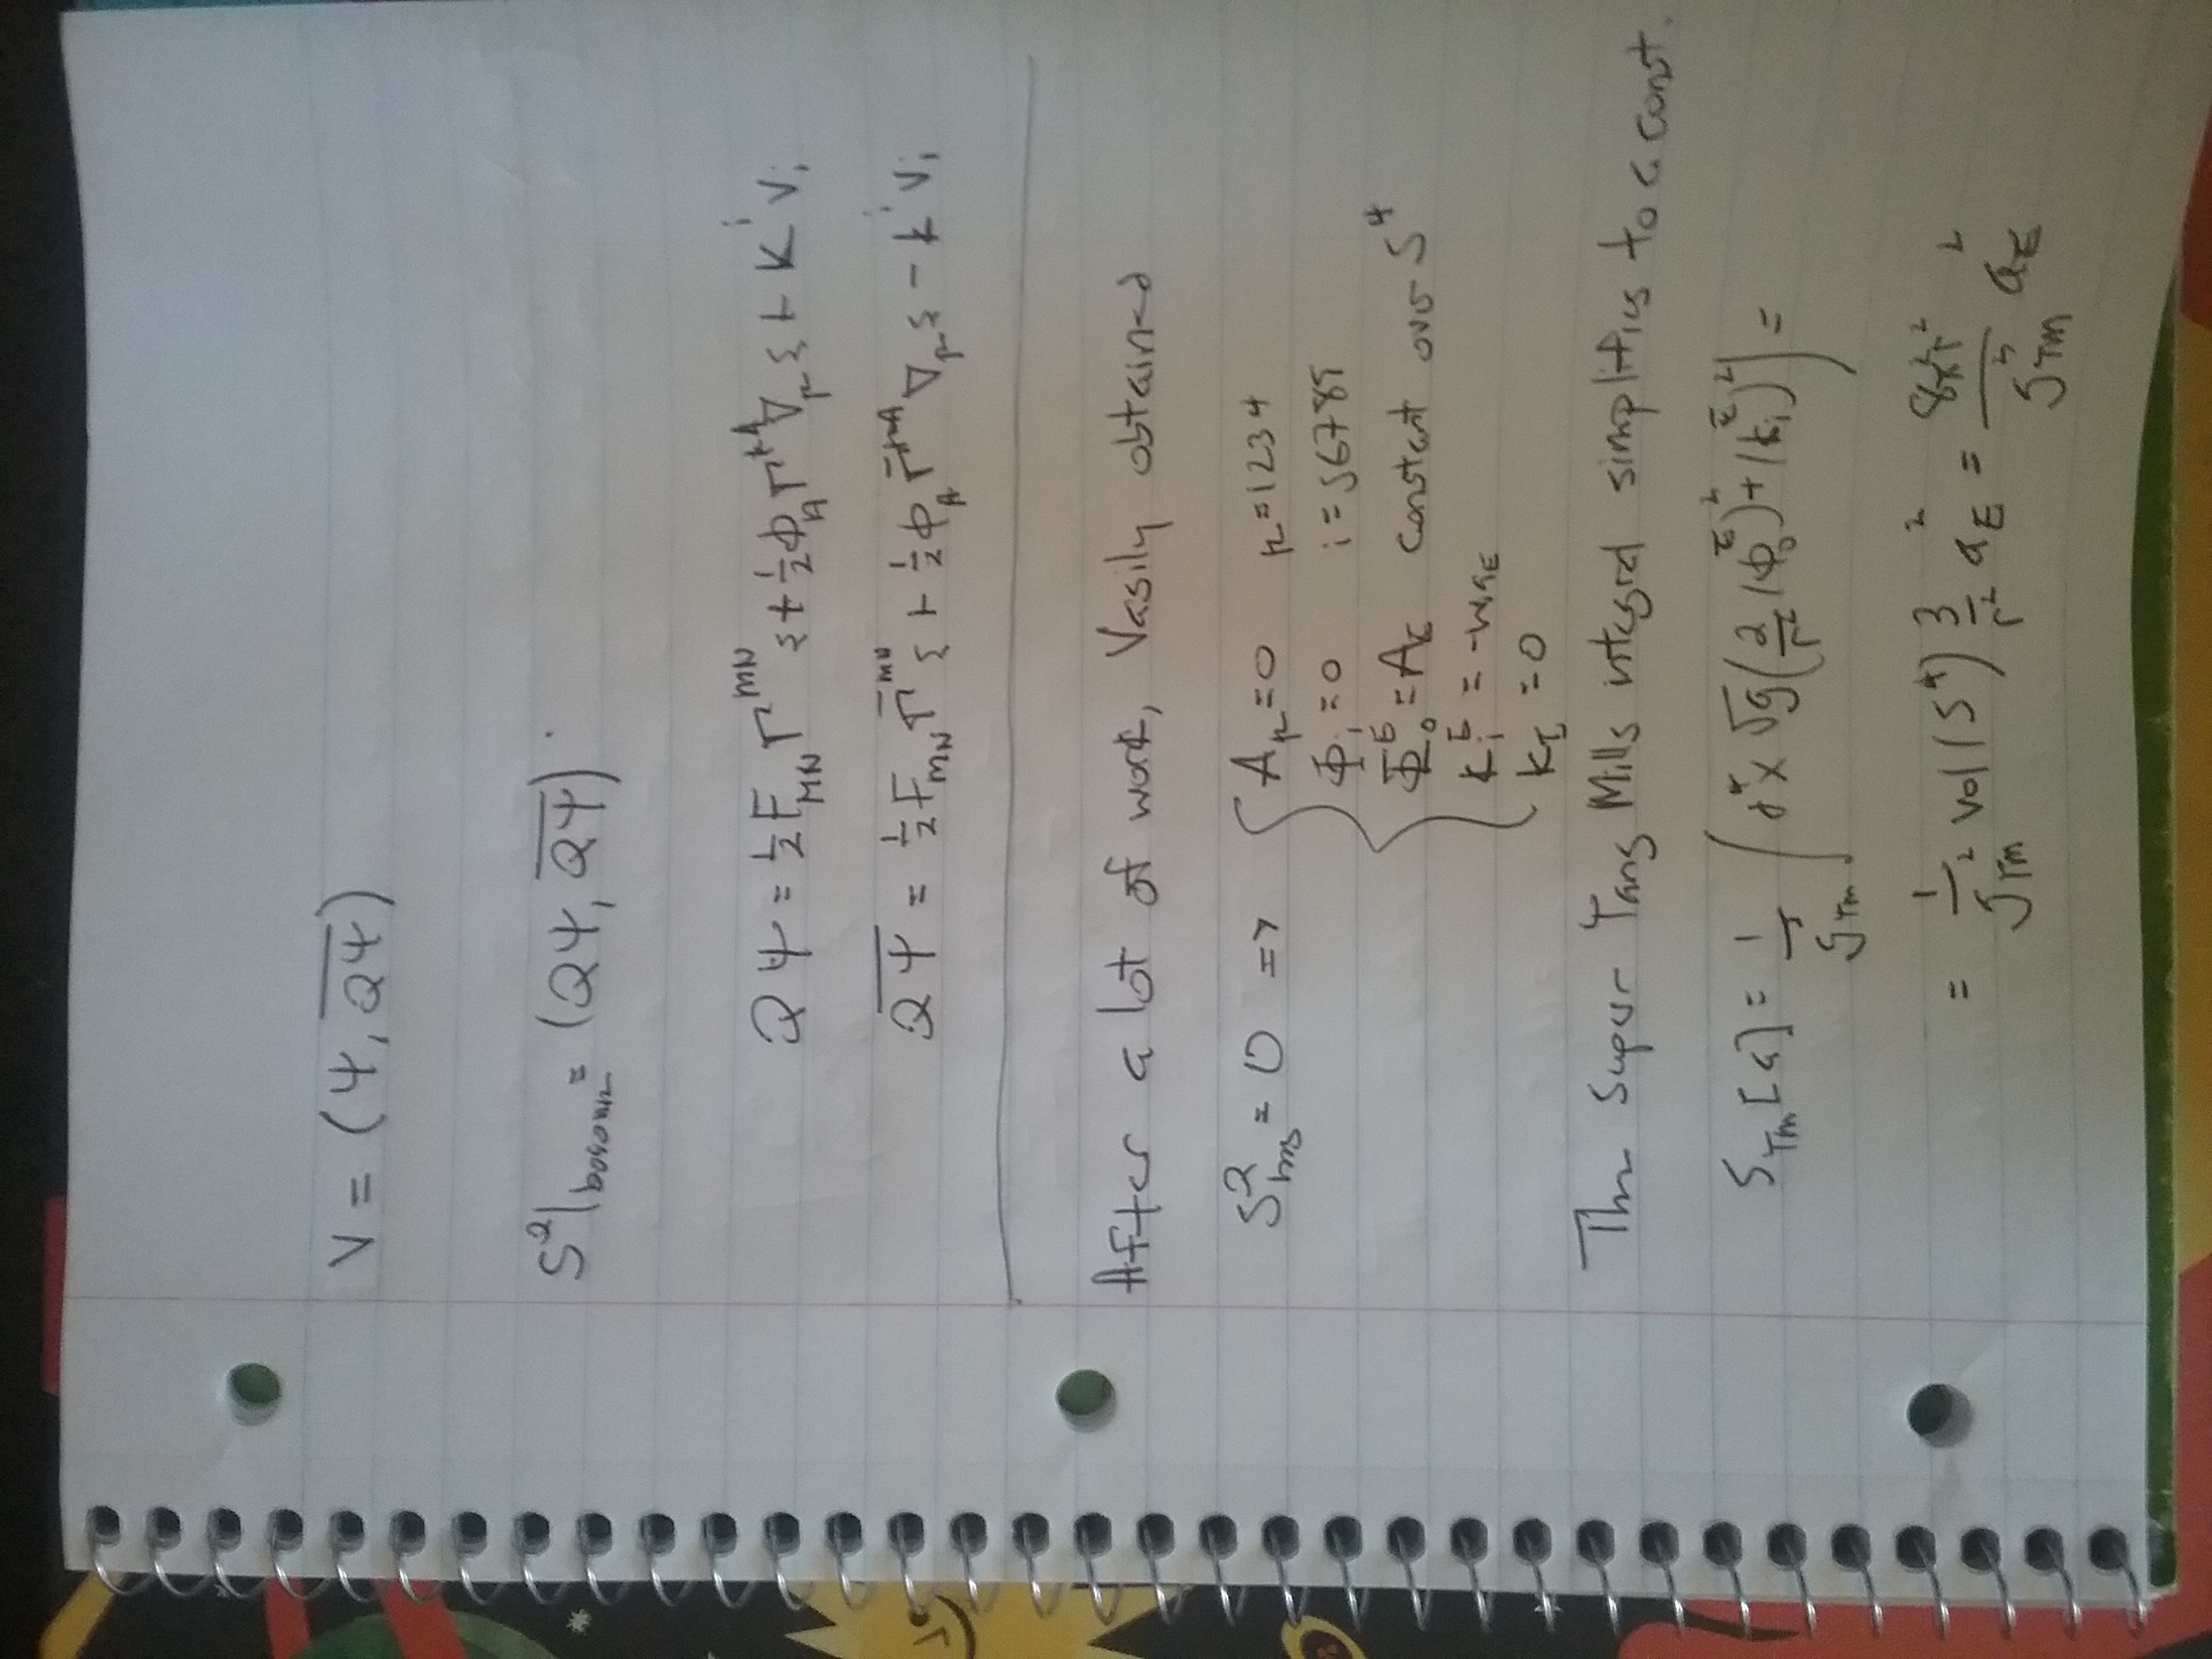 V = (Ψ, \overline{QΨ})
S²|_{bosonic} = (QΨ, \overline{QΨ}).
QΨ = ½ F_{MN} Γ^{MN} ξ + ½ Φ_A Γ^{μA} ∇_μ ξ + K^i ν_i
\overline{QΨ} = ½ F_{MN} \bar{Γ}^{MN} ξ + ½ Φ_A \bar{Γ}^{μA} ∇_μ ξ - k^i ν_i
After a lot of work, Vasily obtained
S²_{bos} = 0 => { A_μ = 0 μ = 1234
Φ_i = 0 i = 56789
Φ_0^E = A_E constant over S⁴
k_i^E = -w_i a_E
k_I = 0
The Super Yang Mills integral simplifies to a const.
S_{YM}[a] = 1/g²_{YM} ∫ d⁴x √g (2/r² (Φ_0^E)² + (k_i^E)²) =
= 1/g²_{YM} vol(S⁴) 3/r² a_E² = 8π²r²/g²_{YM} a_E²